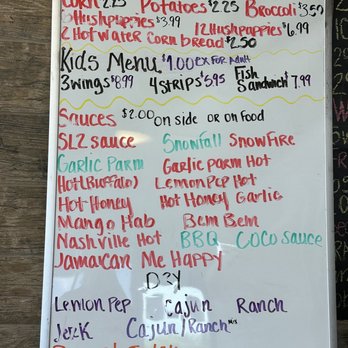 Corn 2.25 Potatoes 2.25 Broccoli $3.50
5 Hushpuppies $3.99 12 Hushpappies $6.99
2 Hot Water Corn bread $2.50
Kids Menu $1.00 EX FOR Adult
3 wings $8.99 4 strips $5.95 Fish Sandwich $7.99
Sauces $2.00 on side or on food
SL2 sauce Snowfall Snowfire
Garlic Parm Garlic parm Hot
Hot(Buffalo) Lemon Pep Hot
Hot Honey Hot Honey Garlic
Mango Hab Bem Bem
Nashville Hot BBQ Coco Sauce
Jamaican Me Happy
Dry
Lemon Pep Cajun Ranch
Jerk Cajun/Ranch Mix